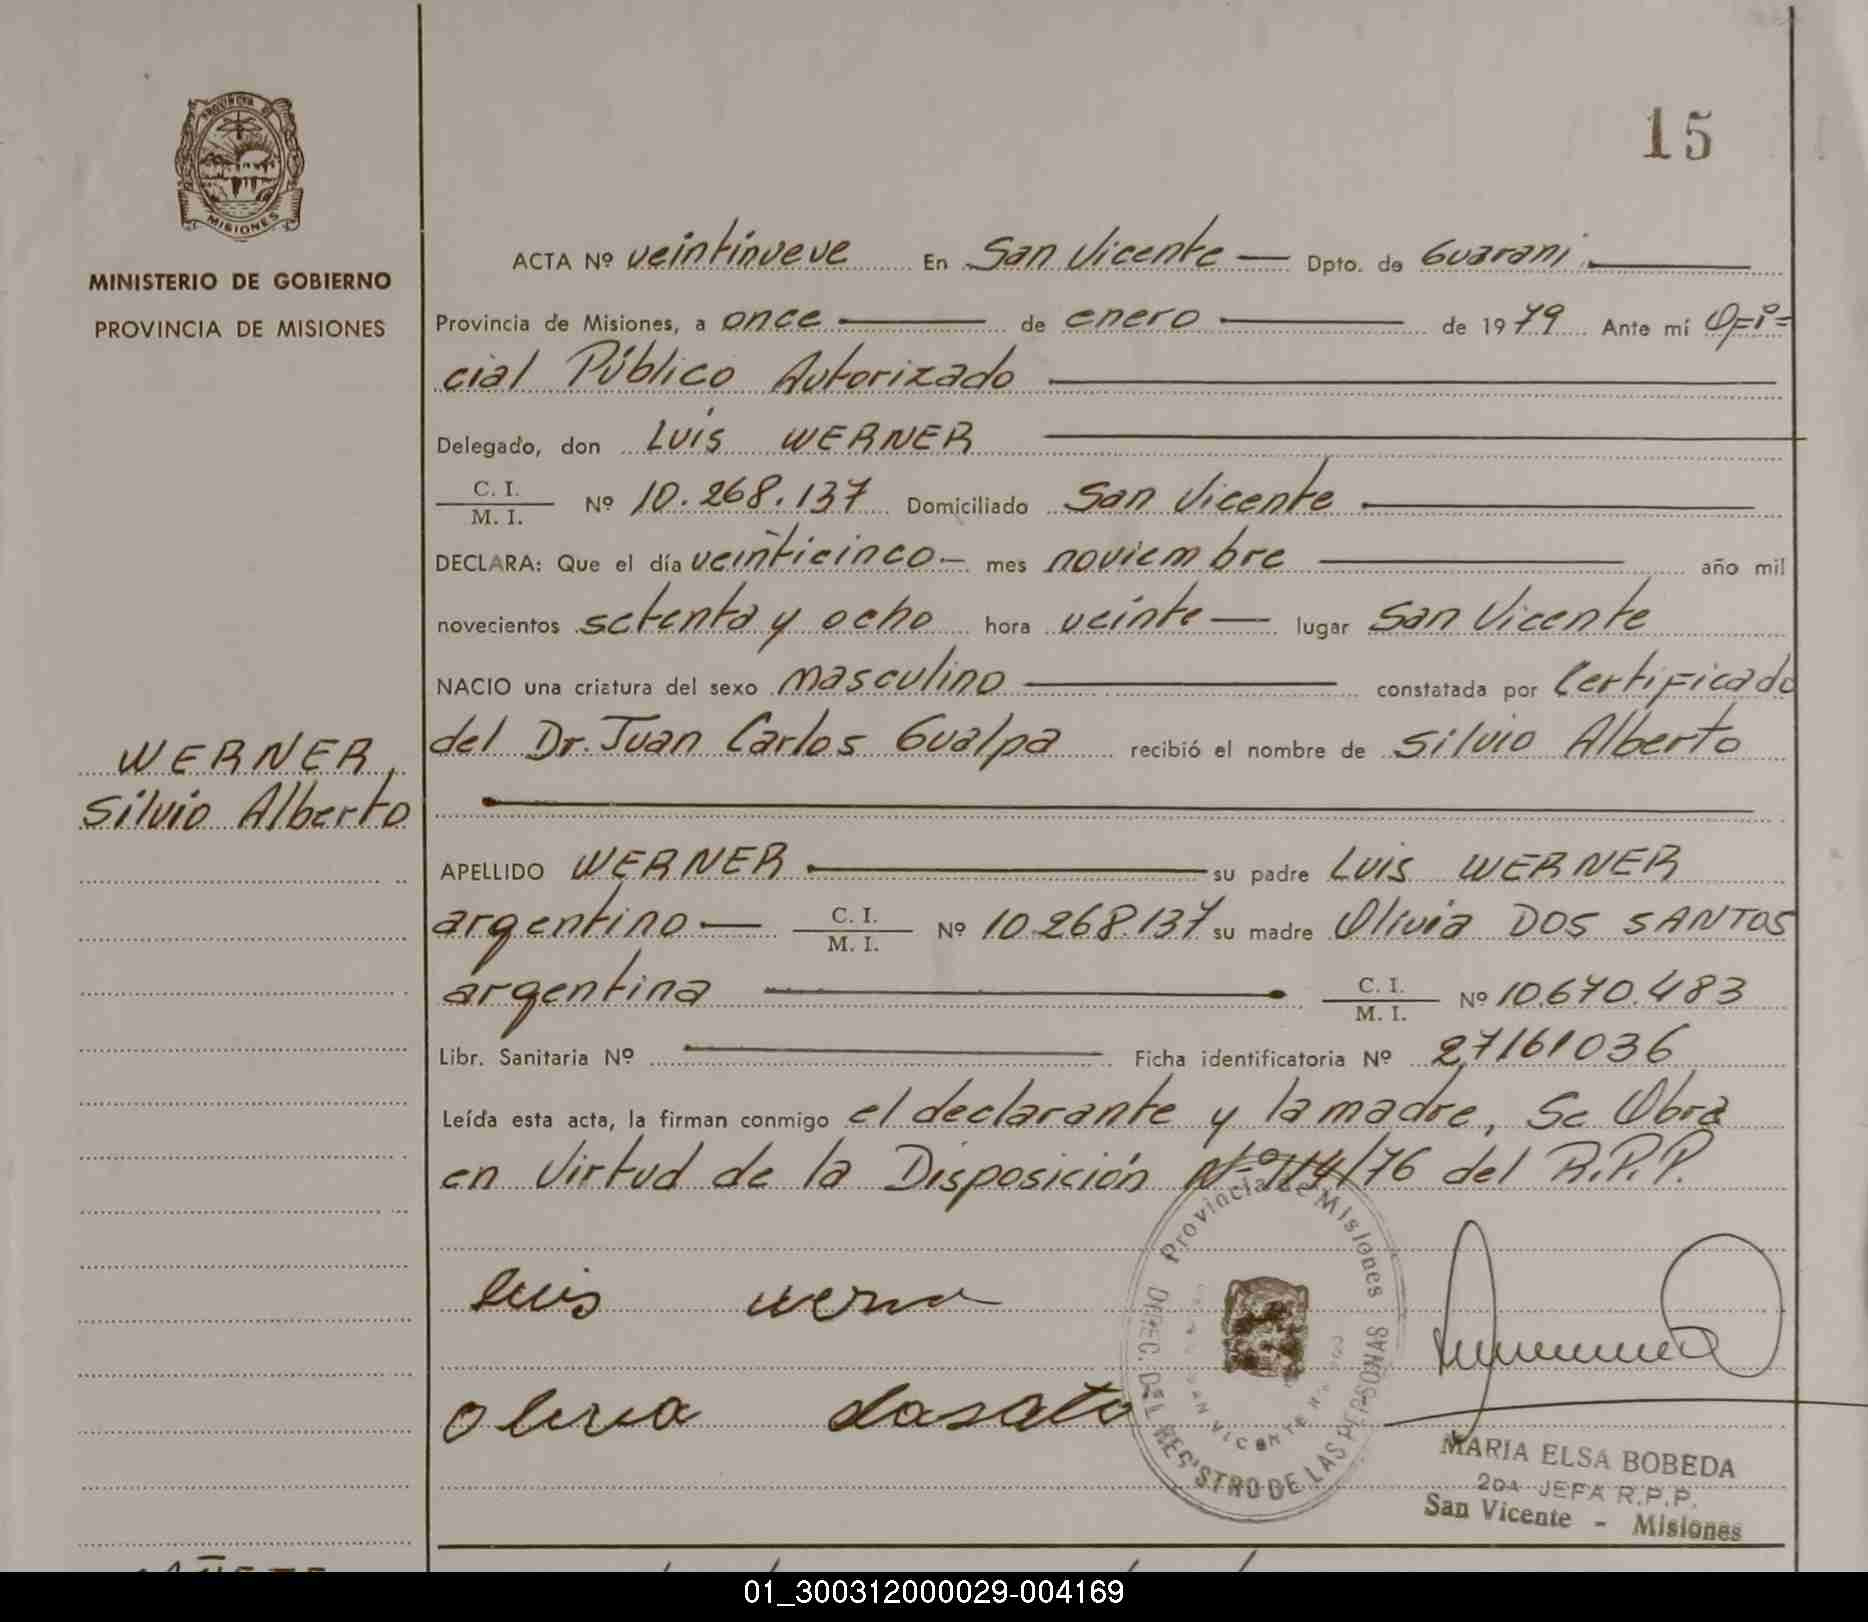 15
PROVINCIA DE
MISIONES
MINISTERIO DE GOBIERNO
PROVINCIA DE MISIONES
WERNER,
Silvio Alberto
ACTA Nº veintinueve En San Vicente — Dpto. de Guarani
Provincia de Misiones, a once de enero de 1979 Ante mí Ofi=
cial Público Autorizado
Delegado, don Luis WERNER
C. I.
M. I. Nº 10.268.137 Domiciliado San Vicente
DECLARA: Que el día veinticinco — mes noviembre año mil
novecientos setenta y ocho hora veinte — lugar San Vicente
NACIO una criatura del sexo masculino constatada por Certificado
del Dr. Juan Carlos Gualpa recibió el nombre de Silvio Alberto
APELLIDO WERNER su padre Luis WERNER
argentino — C. I. M. I. Nº 10.268.137 su madre Olivia DOS SANTOS
argentina C. I. M. I. Nº 10.670.483
Libr. Sanitaria Nº Ficha identificatoria Nº 27161036
Leída esta acta, la firman conmigo el declarante y la madre, Se Obra
en Virtud de la Disposición Nº 114/76 del R.P.P.
Provincia de Misiones
DIREC. DEL REGISTRO DE LAS PERSONAS
SAN VICENTE
luis werner
olivia
MARIA ELSA BOBEDA
2da JEFA R.P.P.
San Vicente - Misiones
01_300312000029-004169